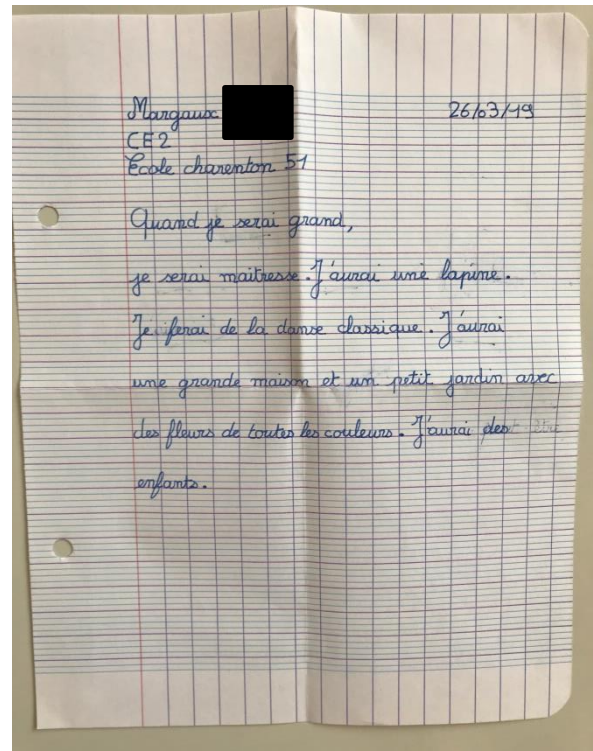 Margaux
CE2
École charenton 51
26/03/19
Quand je serai grand,
je serai maitresse. J'aurai une lapine.
Je ferai de la danse classique. J'aurai
une grande maison et un petit jardin avec
des fleurs de toutes les couleurs. J'aurai des
enfants.